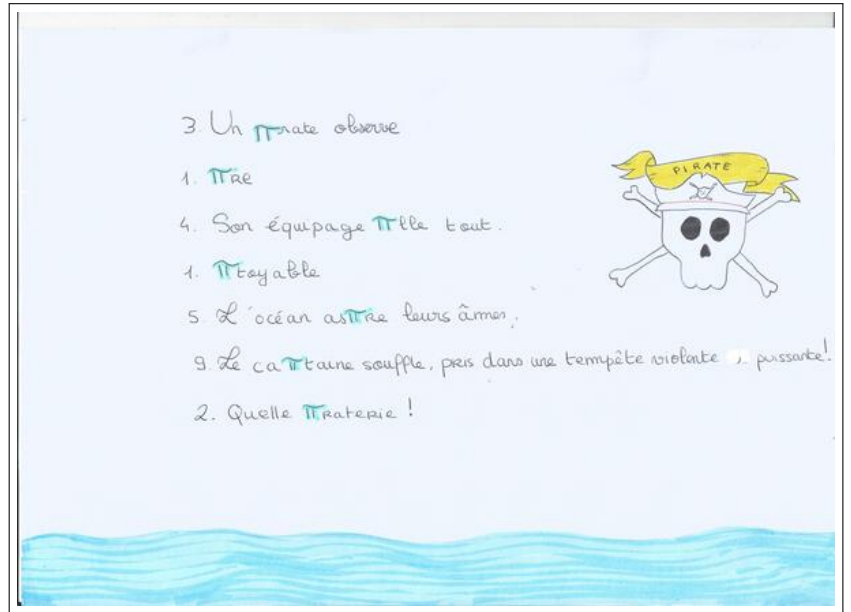 3. Un πrate observe
PIRATE
1. πre
4. Son équipage πlle tout.
1. πtoyable
5. L'océan asπre leurs âmes.
9. Le caπtaine souffle, pris dans une tempête violente, puissante!
2. Quelle πraterie !